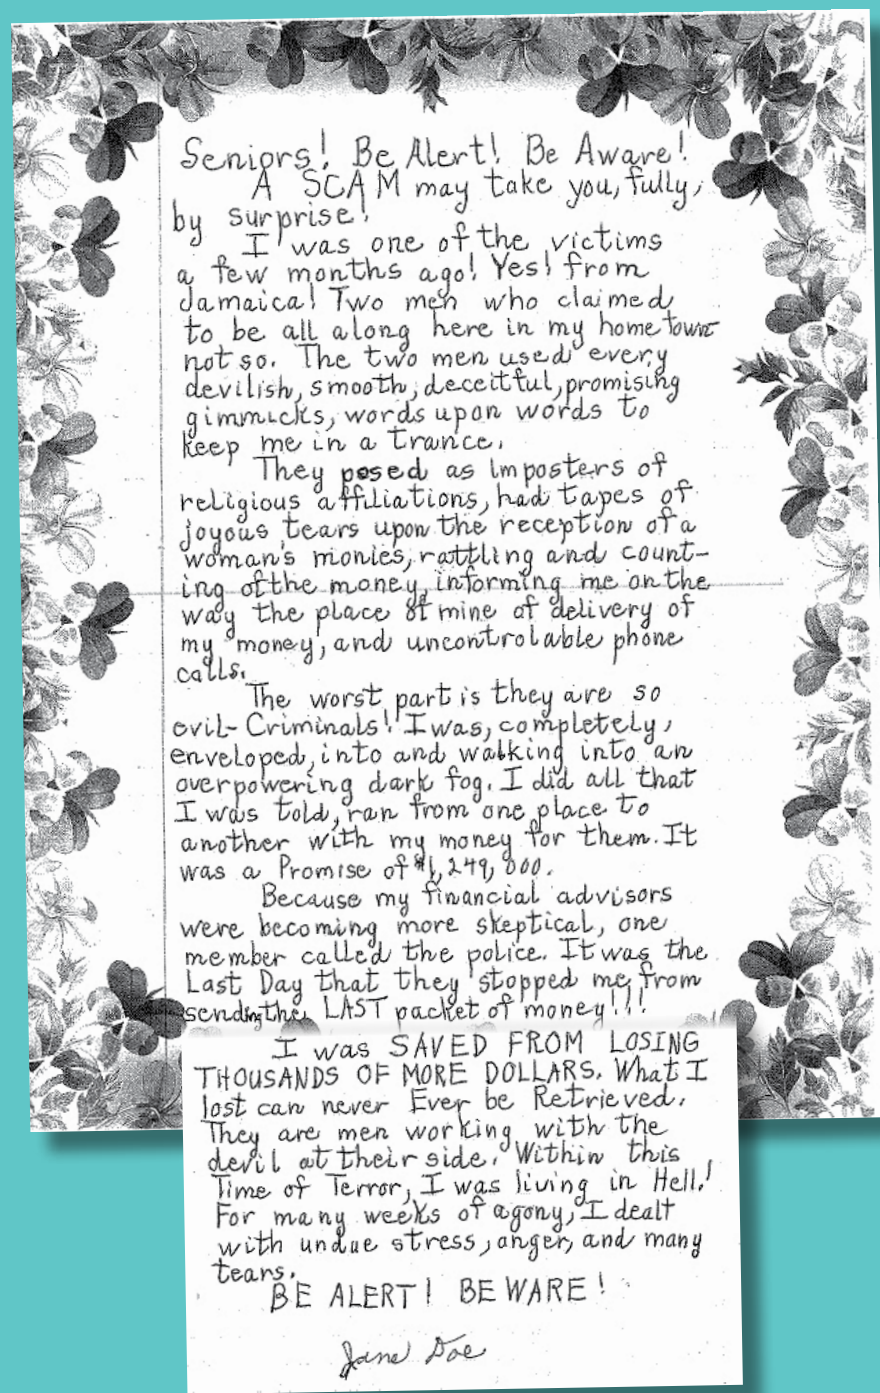 Seniors! Be Alert! Be Aware!
A SCAM may take you, fully,
by surprise!
I was one of the victims
a few months ago! Yes! from
Jamaica! Two men who claimed
to be all along here in my hometown
not so. The two men used every
devilish, smooth, deceitful, promising
gimmicks, words upon words to
keep me in a trance.
They posed as imposters of
religious affiliations, had tapes of
joyous tears upon the reception of a
woman's monies, rattling and count-
ing of the money, informing me on the
way the place of mine of delivery of
my money, and uncontrolable phone
calls.
The worst part is they are so
evil- Criminals! I was, completely,
enveloped, into and walking into an
overpowering dark fog. I did all that
I was told, ran from one place to
another with my money for them. It
was a Promise of $1,249,000.
Because my financial advisors
were becoming more skeptical, one
member called the police. It was the
Last Day that they stopped me from
sending the LAST packet of money!!!
I was SAVED FROM LOSING
THOUSANDS OF MORE DOLLARS. What I
lost can never Ever be Retrieved.
They are men working with the
devil at their side. Within this
Time of Terror, I was living in Hell!
For many weeks of agony, I dealt
with undue stress, anger, and many
tears.
BE ALERT! BEWARE!
Jane Doe